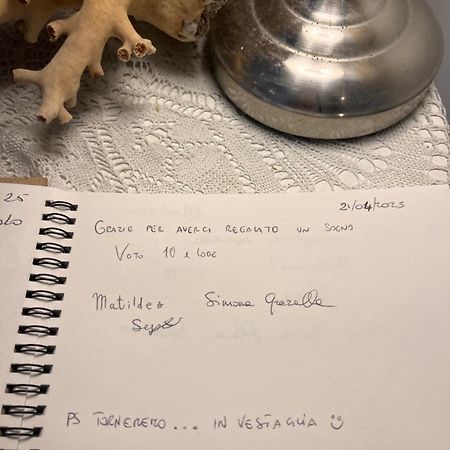 25
21/04/2025
GRAZIE PER AVERCI REGALATO UN SOGNO
VOTO 10 e lode
Matilde Simona
PS TORNEREMO... IN VESTAGLIA ☺